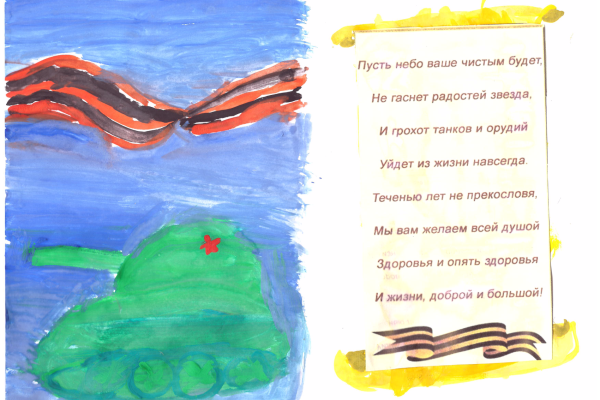 Пусть небо ваше чистым будет,
Не гаснет радостей звезда,
И грохот танков и орудий
Уйдет из жизни навсегда.
Теченью лет не прекословя,
Мы вам желаем всей душой
Здоровья и опять здоровья
И жизни, доброй и большой!